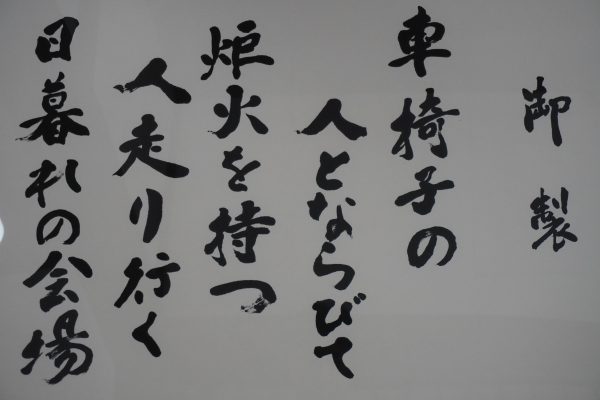 御製
車椅子の
人とならびて
炬火を持つ
人走り行く
日暮れの会場